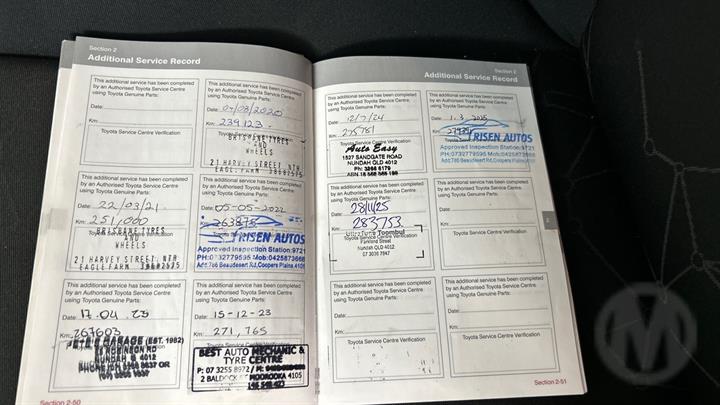 Section 2
Additional Service Record
This additional service has been completed
by an Authorised Toyota Service Centre
using Toyota Genuine Parts:
Date:
Km:
Toyota Service Centre Verification
This additional service has been completed
by an Authorised Toyota Service Centre
using Toyota Genuine Parts:
Date: 04/03/2020
Km: 239123
BRISBANE TYRES
AND
WHEELS
21 HARVEY STREET, NTH
EAGLE FARM 38682575
This additional service has been completed
by an Authorised Toyota Service Centre
using Toyota Genuine Parts:
Date: 22/03/21
Km: 251,000
BRISBANE TYRES
AND
WHEELS
21 HARVEY STREET, NTH
EAGLE FARM 38682575
This additional service has been completed
by an Authorised Toyota Service Centre
using Toyota Genuine Parts:
Date: 05-05-2022
263875
RISEN AUTOS
Approved Inspection Station:9721
PH:0732779595 Mob:0425873668
Add:766 Beaudesert Rd,Coopers Plains,4108
This additional service has been completed
by an Authorised Toyota Service Centre
using Toyota Genuine Parts:
Date: 17.04.23
Km: 267603
PETE'S GARAGE (EST. 1982)
NUNDAH Q 4012
This additional service has been completed
by an Authorised Toyota Service Centre
using Toyota Genuine Parts:
Date: 15-12-23
Km: 271,765
BEST AUTO MECHANIC &
TYRE CENTRE
P: 07 3255 8972 / M:
MOOROOKA 4105
Section 2-50
Section 2
Additional Service Record
This additional service has been completed
by an Authorised Toyota Service Centre
using Toyota Genuine Parts:
Date: 12/7/24
Km: 275781
Toyota Service Centre Verification
Auto Easy
1527 SANDGATE ROAD
NUNDAH QLD 4012
Ph: 3266 6179
This additional service has been completed
by an Authorised Toyota Service Centre
using Toyota Genuine Parts:
Date: 1.3.2025
Km:
RISEN AUTOS
Approved Inspection Station:9721
PH:0732779595 Mob:0425873668
Add:766 Beaudesert Rd,Coopers Plains,4108
This additional service has been completed
by an Authorised Toyota Service Centre
using Toyota Genuine Parts:
Date: 28/11/25
Km: 283753
UltraTune Toombul
Parkland Street
Nundah QLD 4012
07 3036 7947
This additional service has been completed
by an Authorised Toyota Service Centre
using Toyota Genuine Parts:
Date:
Km:
Toyota Service Centre Verification
2
This additional service has been completed
by an Authorised Toyota Service Centre
using Toyota Genuine Parts:
Date:
Km:
Toyota Service Centre Verification
This additional service has been completed
by an Authorised Toyota Service Centre
using Toyota Genuine Parts:
Date:
Km:
Toyota Service Centre Verification
Section 2-51